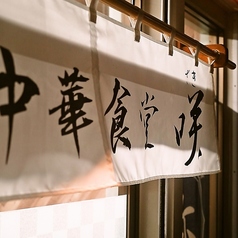 中華食堂 咲